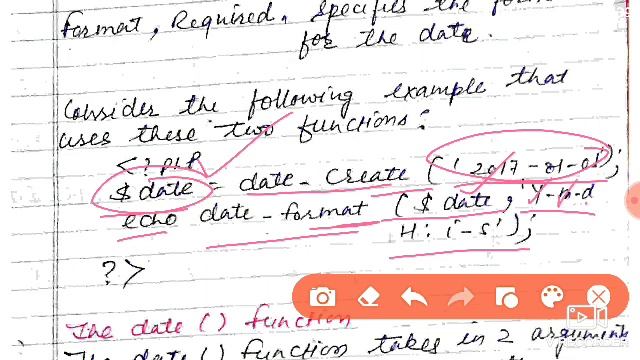 format, Required. Specifies the form
for the date.
Consider the following example that
uses these two functions:
<? PHP
$ date = date - create ('2017-01-01');
echo date-format ($ date, 'Y-m-d
H: i-s');
?>
The date () function
The date () function takes in 2 arguments